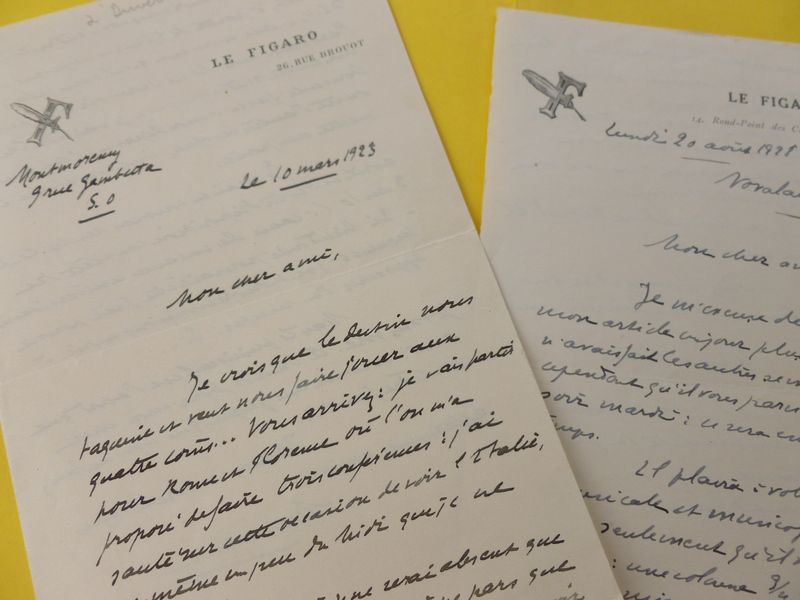 LE FIGARO
26, RUE DROUOT
Montmorency
9 rue Gambetta
S. O
Le 10 mars 1923
Mon cher ami,
Je crois que le destin nous
taquine et veut nous faire jouer aux
quatre coins... Vous arrivez : je vais partir
pour Rome et Florence où l'on m'a
proposé de faire trois conférences : j'ai
sauté sur cette occasion de voir l'Italie,
même un peu du Midi que je ne
ne serai absent que
pars que
LE FIGA
14, Rond-Point des C
Lundi 20 août
Mon cher a
Je m'excuse de
mon article un jour plus
n'avais fait les autres
cependant qu'il vous
soir mardi : ce sera
temps.
Il plaira :
musicale et musico
seulement qu'il
: une colonne 3/4